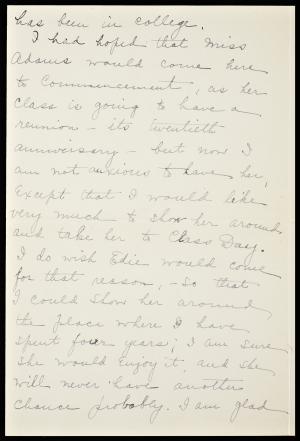 has been in college.
I had hoped that Miss
Adams would come here
to Commencement, as her
class is going to have a
reunion - its twentieth
anniversary - but now I
am not anxious to have her,
except that I would like
very much to show her around
and take her to Class Day.
I do wish Edie would come
for that reason, - so that
I could show her around
the place where I have
spent four years; I am sure
she would enjoy it, and she
will never have another
chance probably. I am glad